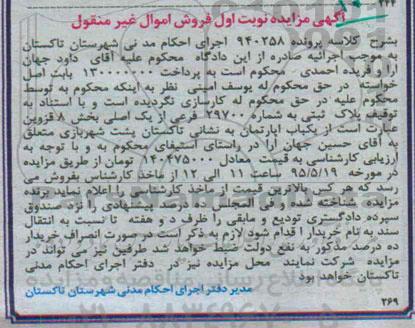 ۲۴۴
آگهی مزایده نوبت اول فروش اموال غیر منقول
بشرح کلاسه پرونده ۹۴۰۲۵۸ اجرای احکام مد نی شهرستان تاکستان
به موجب اجرائیه صادره از این دادگاه محکوم علیه آقای داود جهان
ارا و فریده احمدی محکوم است به پرداخت ۱۳۰۰۰۰۰۰۰ بابت اصل
خواسته در حق محکوم له یوسف امینی نظر به اینکه محکوم به توسط
محکوم علیه در حق محکوم له کارسازی نگردیده است و با استناد به
توقیف پلاک ثبتی به شماره ۲۹۷۰۰ فرعی از یک اصلی بخش ۸ قزوین
عبارت است از یکباب اپارتمان به نشانی تاکستان پشت شهربازی متعلق
به آقای حسین جهان ارا در راستای استیفای محکوم به و با توجه به
ارزیابی کارشناسی به قیمت معادل ۱۴۰۴۷۵۰۰۰ تومان از طریق مزایده
در مورخه ۹۵/۵/۱۹ ساعت ۱۱ الی ۱۲ از ماخذ کارشناس بفروش می
رسد که هر کس بالاترین قیمت از ماخذ کارشناسی را اعلام نماید برنده
مزایده شناخته شده و فی المجلس پیشنهادی را نزد صندوق
سپرده دادگستری تودیع و مابقی را ظرف د و هفته تا نسبت به انتقال
سند به نام خریدار ا قدام شود لازم به ذکر است در صورت انصراف خریدار
ده درصد مذکور به نفع دولت ضبط خواهد شد طرفین نیز می تواند در
مزایده شرکت نمایند محل مزایده نیز در دفتر اجرای احکام مدنی
تاکستان خواهد بود
مدیر دفتر اجرای احکام مدنی شهرستان تاکستان
۲۶۹